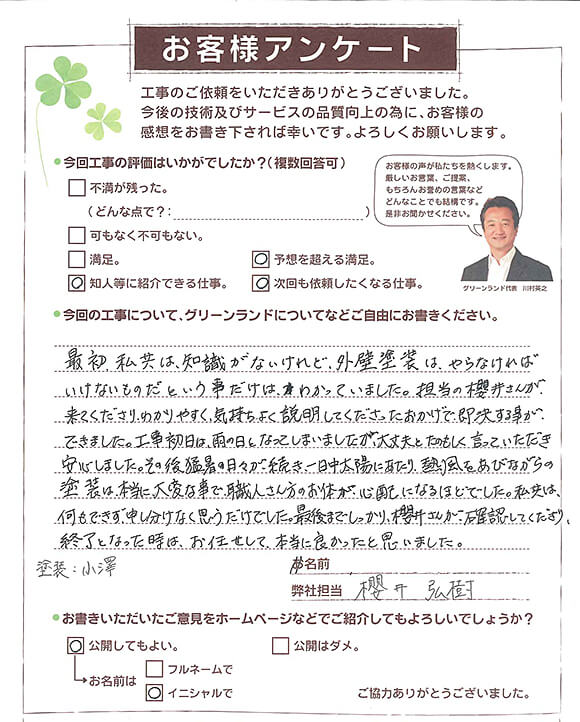 お客様アンケート
工事のご依頼をいただきありがとうございました。
今後の技術及びサービスの品質向上の為に、お客様の
感想をお書き下されば幸いです。よろしくお願いします。
●今回工事の評価はいかがでしたか？(複数回答可)
お客様の声が私たちを熱くします。
厳しいお言葉、ご提案、
もちろんお誉めの言葉など
どんなことでも結構です。
是非お聞かせください。
グリーンランド代表 川村英之
□不満が残った。
(どんな点で？: )
□可もなく不可もない。
□満足。 ☑予想を超える満足。
☑知人等に紹介できる仕事。 ☑次回も依頼したくなる仕事。
●今回の工事について、グリーンランドについてなどご自由にお書きください。
最初、私共は、知識がないけれど、外壁塗装は、やらなければ
いけないものだという事だけは、わかっていました。担当の櫻井さんが、
来てくださり、わかりやすく、気持ちよく説明してくださったおかげで即決する事が、
できました。工事初日は、雨の日となってしまいましたが、大丈夫とたのもしく言っていただき
安心しました。その後猛暑の日々が、続き、一日中太陽にあたり、熱風をあびながらの
塗装は、本当に、大変な事で、職人さん方のお体が、心配になるほどでした。私共は、
何もできず、申し分けなく思うだけでした。最後までしっかり、櫻井さんが、確認してくださり、
終了となった時は、お任せして、本当に良かったと思いました。
塗装：小澤
お名前
弊社担当 櫻井 弘樹
●お書きいただいたご意見をホームページなどでご紹介してもよろしいでしょうか？
☑公開してもよい。 □公開はダメ。
お名前は □フルネームで
☑イニシャルで
ご協力ありがとうございました。